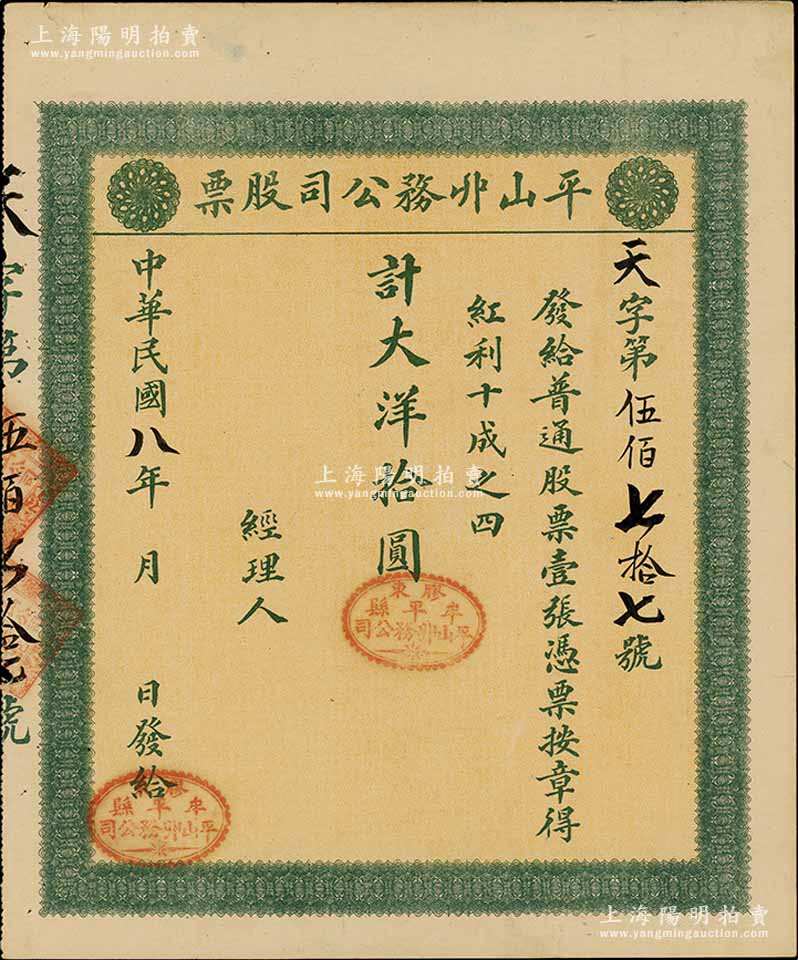 上海陽明拍賣
www.yangmingauction.com
上海陽明拍賣
www.yangmingauction.com
平山丱務公司股票
天字第伍佰七拾七號
發給普通股票壹張憑票按章得
紅利十成之四
計大洋拾圓
經理人
中華民國八年 月 日發給
膠東
牟平縣
平山丱務公司
膠
牟平縣
平山丱務公司
天字第伍佰七拾七號
上海陽明拍賣
www.yangmingauction.com
上海陽明拍賣
www.yangmingauction.com